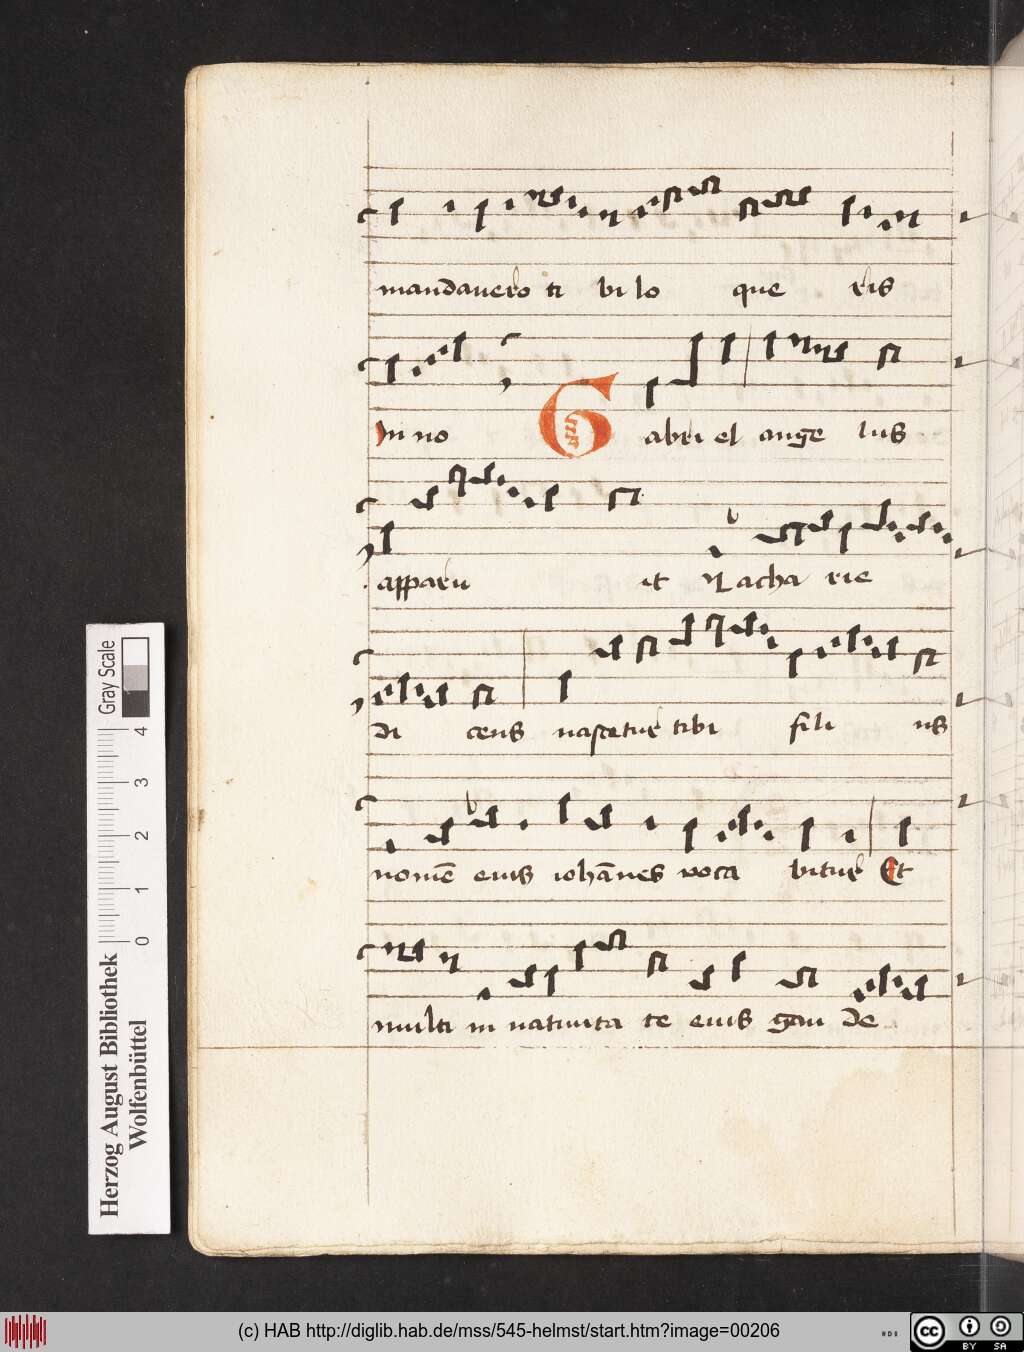 mandauero ti bi lo que ris
In no Gabri el ange lus
apparu it Zacha rie
di cens nascetur tibi fili us
nomē eius iohānes voca bitur Et
multi in natiuita te eius gau de
Gray Scale
0 1 2 3 4
Herzog August Bibliothek
Wolfenbüttel
(c) HAB http://diglib.hab.de/mss/545-helmst/start.htm?image=00206
cc BY SA